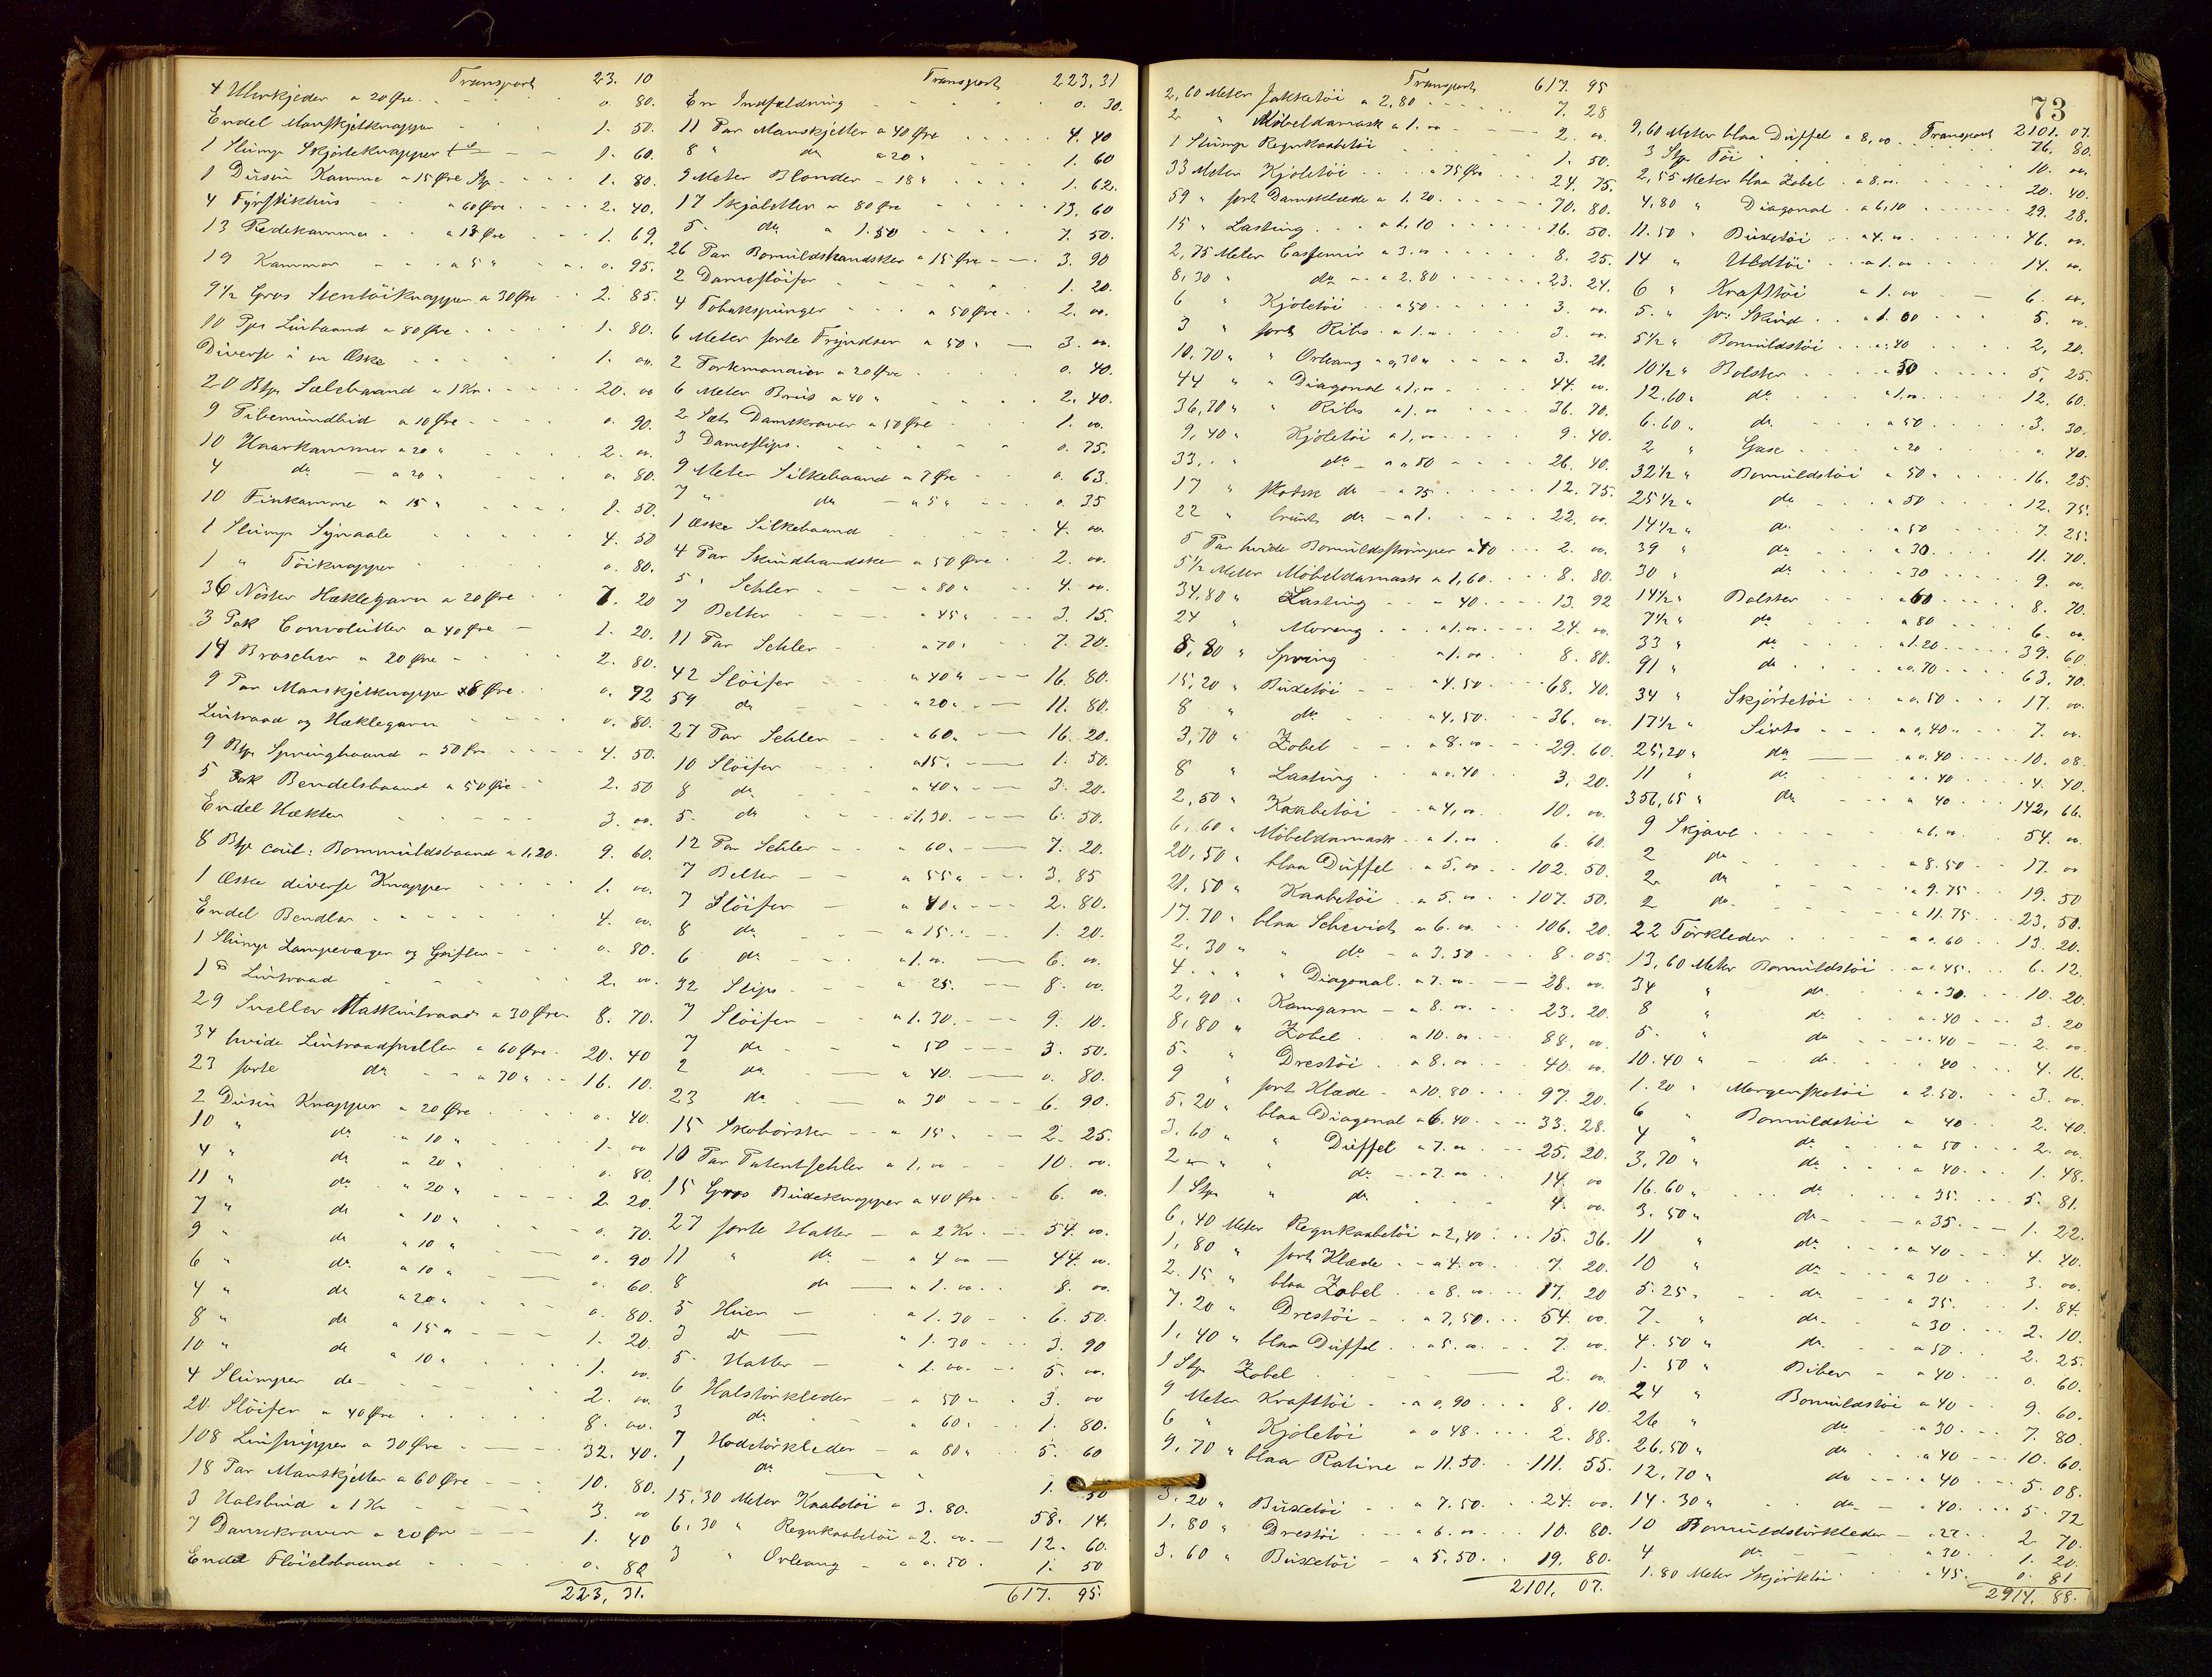 Transport 23. 10
4 Uhrkjeder a 20 Øre 0. 80.
Endel Manskjetknapper 1. 50.
1 Slump Skjorteknapper 1. 60.
1 Dusin Kamme a 15 Øre Stp. 1. 80.
4 Fyrstikhus a 60 Øre 2. 40.
13 Redekamme a 13 Øre 1. 69.
19 Kammer a 5 " 0. 95.
9 1/2 Gros Stentöiknapper a 30 Øre 2. 85.
10 Pgr Linbaand a 80 Øre 1. 80.
Diverse i en Æske 1. 00.
20 Stp Sælebaand a 1 Kr. 20. 00
9 Pibemundbid a 10 Øre 0. 90.
10 Haarkammer a 20 " 2. 00.
4 do a 20 " 0. 80.
10 Finkamme a 15 " 1. 50.
1 Slump Synaale 4. 50
1 " Töiknapper 0. 80.
36 Nöster Hæklegarn a 20 Øre 7. 20
3 Pak Convolutter a 40 Øre 1. 20.
14 Broscher a 20 Øre 2. 80.
9 Par Manskjetknapper a 8 Øre 0. 72
Lintraad og Hæklegarn 0. 80.
9 Stp. Springbaand a 50 Øre 4. 50.
5 Pak Bendelsbaand a 50 Øre 2. 50
Endel Hækter 3. 00.
8 Stp coul: Bommuldsbaand a 1,20. 9. 60.
1 Æske diverse Knapper 1. 00.
Endel Bendler 4. 00.
1 Slump Lampevæger og Grifler 0. 80.
1 ℔ Lintraad 2. 00.
29 Sneller Maskintraad a 30 Øre 8. 70.
34 hvide Lintraadsneller a 60 Øre 20. 40
23 sorte do a 70 " 16. 10.
2 Dusin Knapper a 20 Øre 0. 40.
10 " do a 10 " 1. 00
4 " do a 20 " 0. 80.
11 " do " 20 " 2. 20.
7 " do " 10 " 0. 70.
9 " do " 10 " 0. 90
6 " do a 10 " 0. 60.
4 " do a 20 " 0. 80.
8 " do " 15 " 1. 20.
10 " do " 10 " 1. 00.
4 Slumper do 2. 00.
20 Slöifer a 40 Øre 8. 00.
108 Linsnipper a 30 Øre 32. 40.
18 Par Manskjetter a 60 Øre 10. 80.
3 Halsbind a 1 Kr 3. 00
7 Damekraver a 20 Øre 1. 40
Endel Flöielsbaand 0. 80
223, 31.
Transport 223, 31
En Indfældning 0. 30.
11 Par Manskjetter a 40 Øre 4. 40
8 " do a 20 " 1. 60
9 Meter Blonder - 18 " 1. 62.
17 Skjaletter a 80 Øre 13. 60
5 do a 1.50 7. 50.
26 Par Bomuldshandsker a 15 Øre 3. 90
2 Dameslöifer 1. 20.
4 Tobakspunger a 50 Øre 2. 00.
6 Meter sorte Fryndser a 50 " 3. 00.
2 Portemonaier a 20 Øre 0. 40.
6 Meter Brus a 40 " 2. 40.
2 Sæt Damekraver a 50 Øre 1. 00.
3 Dameslips. 0. 75.
9 Meter Silkebaand a 7 Øre 0. 63.
7 " do a 5 " 0. 35
1 Æske Silkebaand 4. 00.
4 Par Skindhandsker a 50 Øre 2. 00.
5 " Sehler a 80 " 4. 00.
7 Belter 45 " 3. 15.
11 Par Sehler a 70 " 7. 70.
42 Slöifer a 40 " 16. 80.
59 do a 20 " 11. 80.
27 Par Sehler a 60 " 16. 20.
10 Slöifer a 15 " 1. 50.
8 do a 40 " 3. 20.
5. do a 1,30. 6. 50.
12 Par Sehler a 60 " 7. 20.
7 Belter a 55 " 3. 85
7 Slöifer a 40 " 2. 80.
8 do a 15 " 1. 20.
6 do a 1.00. 6. 00.
32 Slips a 25. 8. 00.
7 Slöifer a 1. 30. 9. 10.
7 do " 50 3. 50.
2 do " 40. 0. 80.
23 do a 30 6. 90.
15 Skobörster a 15 " 2. 25.
10 Par Patentsehler a 1,00 10. 00.
15 Gros Buxeknapper a 40 Øre 6. 00.
27 sorte Hatter a 2 Kr. 54. 00.
11 " do a 4 00 44. 00.
8 do a 1. 00. 8. 00.
5 Huer a 1. 30 6. 50.
3 do " 1. 30 3. 90
5 Hatter " 1. 00. 5. 00.
6 Halstörkleder a 50 " 3. 00
3 do a 60 " 1. 80.
7 Hodetörkleder a 80 " 5. 60
1 do 1. 50
15,30 Meter Kaabetöi a 3. 80. 58. 14.
6, 30 " Regnkaabetöi a 2. 00. 12. 60.
3 " Orleang a 0. 50. 1. 50
617. 95.
Transport 617. 95
2,60 Meter Jakketöi a 2,80 7. 28
2 " Möbeldamask a 1. 00 2. 00.
1 Slump Regnkaabetöi 1. 50.
33 Meter Kjoletöi a 75 Øre 24. 75.
59 " sort Dameklæde a 1. 20. 70. 80.
15 " Lasting a 1,10 16. 50.
2,75 Meter Casjemir a 3. 00 8. 25.
8,30 " do a 2.80 23. 24.
6 " Kjoletöi a 50 3. 00.
3 " sort Ribs a 1. 00 3. 00.
10,70 " " Orleang a 0,30 " 3. 21.
44 " " Diagonal a 1,00 44. 00.
36,70 " " Ribs a 1. 00 36. 70.
9,40 " Kjoletöi a 1,00 9. 40.
33. " do a 80 26. 40.
17 " skotsk do a 75 12. 75.
22 " brunt do a 1. 22. 00.
5 Par hvide Bomuldsströmper a 40 2. 00.
5 1/2 Meter Möbeldamask a 1,60. 8. 80.
34.80 " Lasting 40 13. 92
24 " Moreng a 1.00 24. 00.
8,80 " Spring a 1. 00 8. 80.
15,20 " Buxetöi a 4.50 68. 40.
8 " do a 4,50. 36. 00.
3,70 " Zobel a 8. 00 29. 60.
8 " Lasting a 0.40 3. 20.
2,50 " Kaabetöi a 4,00 10. 00.
6,60 " Möbeldamask a 1.00 6. 60.
20,50 " blaa Düffel a 5.00 102. 50.
21.50 " Kaabetöi a 5.00 107. 50.
17.70 " blaa Schevidt a 6.00 106. 20.
2.30 " " do a 3.50 8. 05.
4. " " Diagonal a 7.00 28. 00.
2,90 " Kamgarn a 8. 00 23. 20.
8,80 " Zobel a 10. 00 88. 00.
5 " Drestöi a 8. 00 40. 00.
9 " sort Klæde a 10.80 97. 20.
5.20 " blaa Diagonal a 6.40 33. 28.
3.60 " " Düffel a 7.00 25. 20.
2 " " do a 7.00 14 00
1 Stp " do 4. 00.
6,40 Meter Regnkaabetöi a 2,40 15. 36.
1,80 " sort Klæde a 4.00 7. 20.
2.15 " blaa Zobel a 8. 00 17. 20
7.20 " Drestöi a 7,50 54. 00.
1,40 " blaa Düffel a 5. 00 7. 00.
1 Stp Zobel 2. 00.
9 Meter Krafttöi a 0,90 8. 10.
6 " Kjoletöi a 0 48 2. 88.
9,70 " blaa Ratine a 11.50 111. 55.
3.20 " Buxetöi a 7.50 24. 00.
1.80 " Drestöi a 6. 00 10. 80.
3.60 " Buxetöi a 5,50 19. 80.
2101. 07.
73
Transport 2101. 07.
9,60 Meter blaa Düffel a 8,00 76. 80.
3 Stp. Töi 10. 00.
2,55 Meter blaa Zobel a 8.00 20. 40.
4,80 " Diagonal a 6,10 29. 28.
11.50 " Buxetöi a 4.00 46. 00.
14 " Uldtöi a 1.00 14. 00.
6 " Krafttöi a 1.00 6. 00.
5. " gr: Skind a 1.00 5. 00.
5 1/2 " Bomuldstöi a 40 2. 20.
10 1/2 " Bolster 50 5. 25.
12,60 " do a 1.00 12. 60.
6.60 " do a 50 3. 30.
2 " Gase a 20 0. 40.
32 1/2 " Bomuldstöi a 50 " 16. 25.
25 1/2 " do a 50 12. 75.
14 1/2 " do a 50 7. 25.
39 " do a 30 11. 70.
30 " do a 30 9. 00.
14 1/2 " Bolster a 60 8. 70.
7 1/2 " do a 80 6. 00.
33 " do a 1.20 39. 60.
91 " do a 0.70 63. 70.
34 " Skjörtetöi a 0.50 17. 00.
17 1/2 " Sirts a 0,40 7. 00.
25,20 " do a 0.40 10. 08.
11 " do a 40 4. 40.
356,65 " do a 40 142, 66.
9 Skjave a 6.00 54. 00.
2 do a 8.50 17. 00
2 do a 9.75 19. 50
2 do a 11.75 23, 50.
22 Törkleder a 0.60 13. 20.
13,60 Meter Bomuldstöi a 45 6. 12.
34 " do a 30. 10. 20.
8 " do a 40 3. 20
5. " do 40 2. 00.
10.40 " do a 40 4. 16.
1.20 " Morgenskotöi a 2.50. 3. 00.
6 " Bomuldstöi a 40 2. 40.
4 " do a 50 2. 00.
3,70 " do a 40. 1. 48.
16.60 " do a 35. 5. 81.
3.50 " do a 35. 1. 22.
11 " do a 40 4. 40.
10 " do a 30 3. 00.
5.25 " do a 35. 1. 84.
7. " do a 30 2. 10.
4.50 " do a 50 2. 25.
1.50 " Biber a 40 0. 60.
24 " Bomuldstöi a 40 9. 60.
26 " do a 30 7. 80.
26,50 " do a 40 10. 60.
12,70 " do a 40 5. 08.
14.30 " do a 40 5. 72
10 Bomuldstörkleder a 27 2. 70.
4 do a 30 1. 20.
1.80 Meter Skjörtetöi a 45. 0. 81
2914, 88.